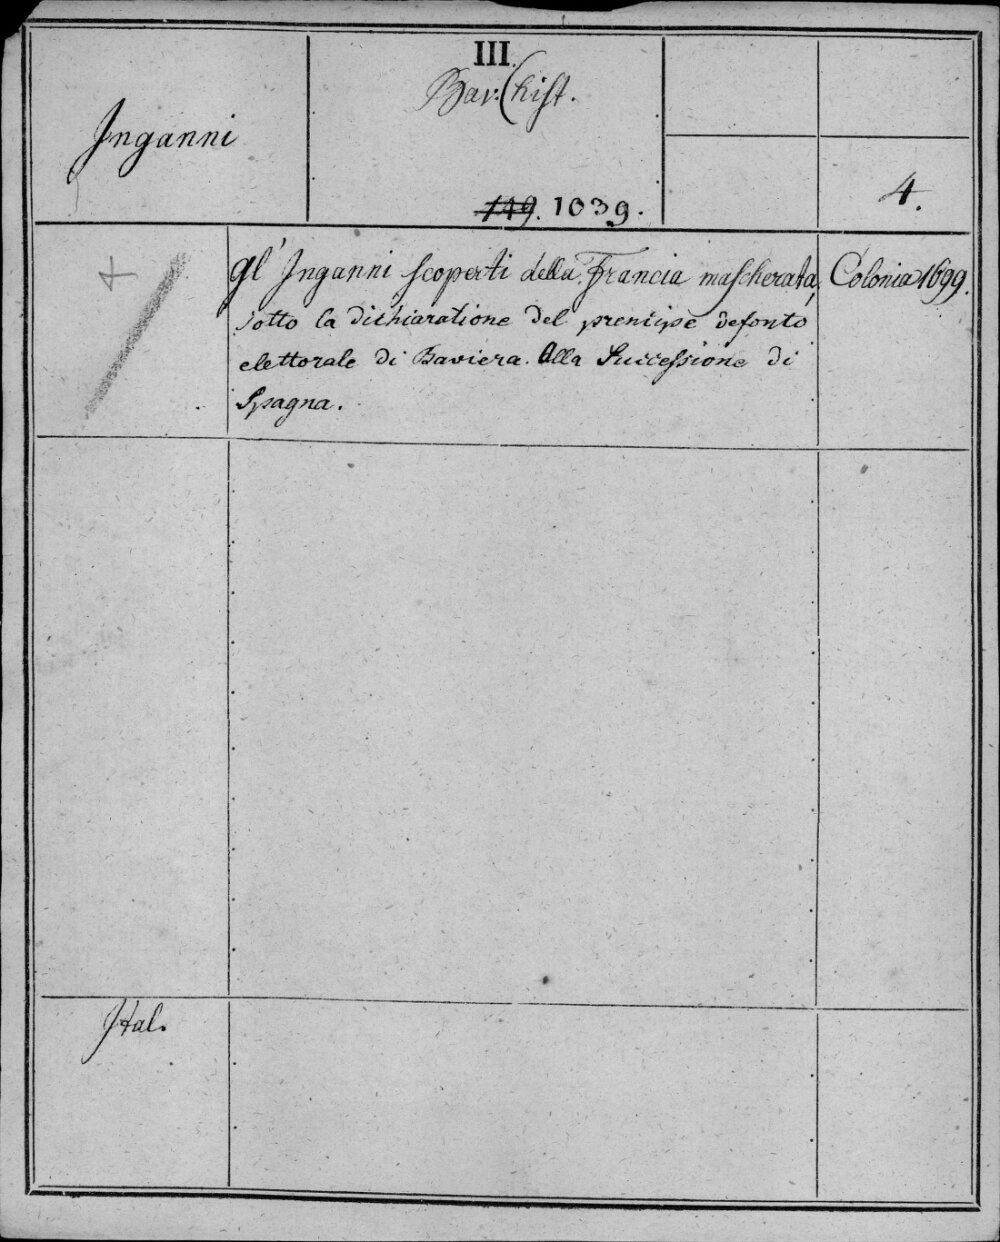 III.
Bav. (hist.
Inganni
149. 1039.
4.
+
Gl' Inganni scoperti della Francia mascherata, Colonia 1699.
sotto la dichiaratione del prencipe defonto
elettorale di Baviera. Alla Successione di
Spagna.
Ital.